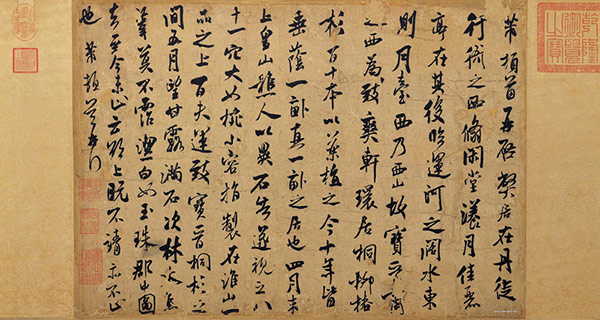 芾頓首再啟弊居在丹徒
行衙之西翛閑堂漾月佳麗
亭在其後臨運河之闊水東
則月臺西乃西山故寶晉齋
之西為致爽軒環居桐柳椐
杉百十本以藥植之今十年皆
垂蔭一畝真一畝之居也四月末
上皇山樵人以異石告遂視之八
十一穴大如椀小容指製在淮山一
品之上百夫運致寶晉桐杉之
間五月望甘露滿石次林木焦
葦莫不霑潔白如玉珠郡中圖
去至今未止云欲上既不請亦不止
也 芾頓首再拜